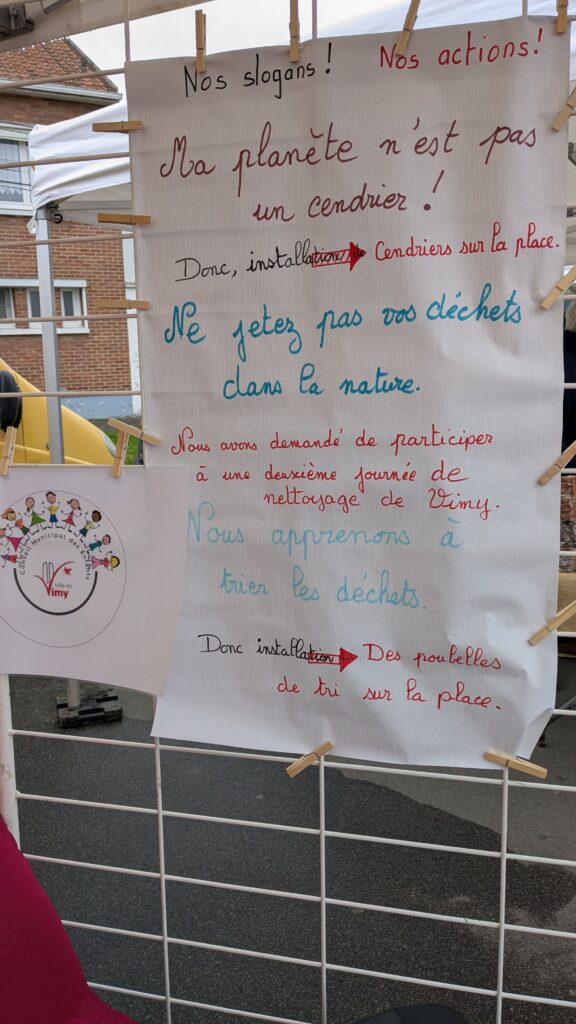 Nos slogans ! Nos actions !
Ma planète n'est pas
un cendrier !
Donc, installation de Cendriers sur la place.
Ne jetez pas vos déchets
dans la nature.
Nous avons demandé de participer
à une deuxième journée de
nettoyage de Vimy.
Nous apprenons à
trier les déchets.
Donc installation... Des poubelles
de tri sur la place.
Conseil Municipal des Enfants
Ville de
Vimy